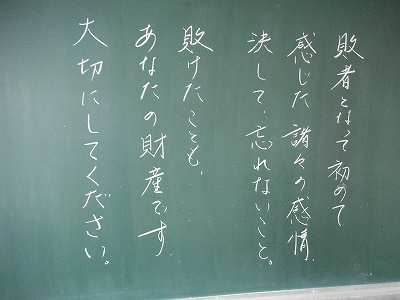 敗者となって初めて
感じた諸々の感情、
決して、忘れないこと。
敗けたことも、
あなたの財産です
大切にしてください。